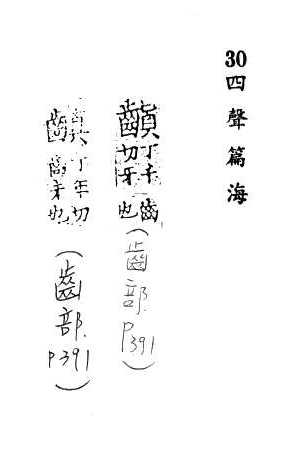 30四聲篇海
齻丁千切牙齒也(齒部.P391)
齻丁年切齒牙也(齒部.P391)